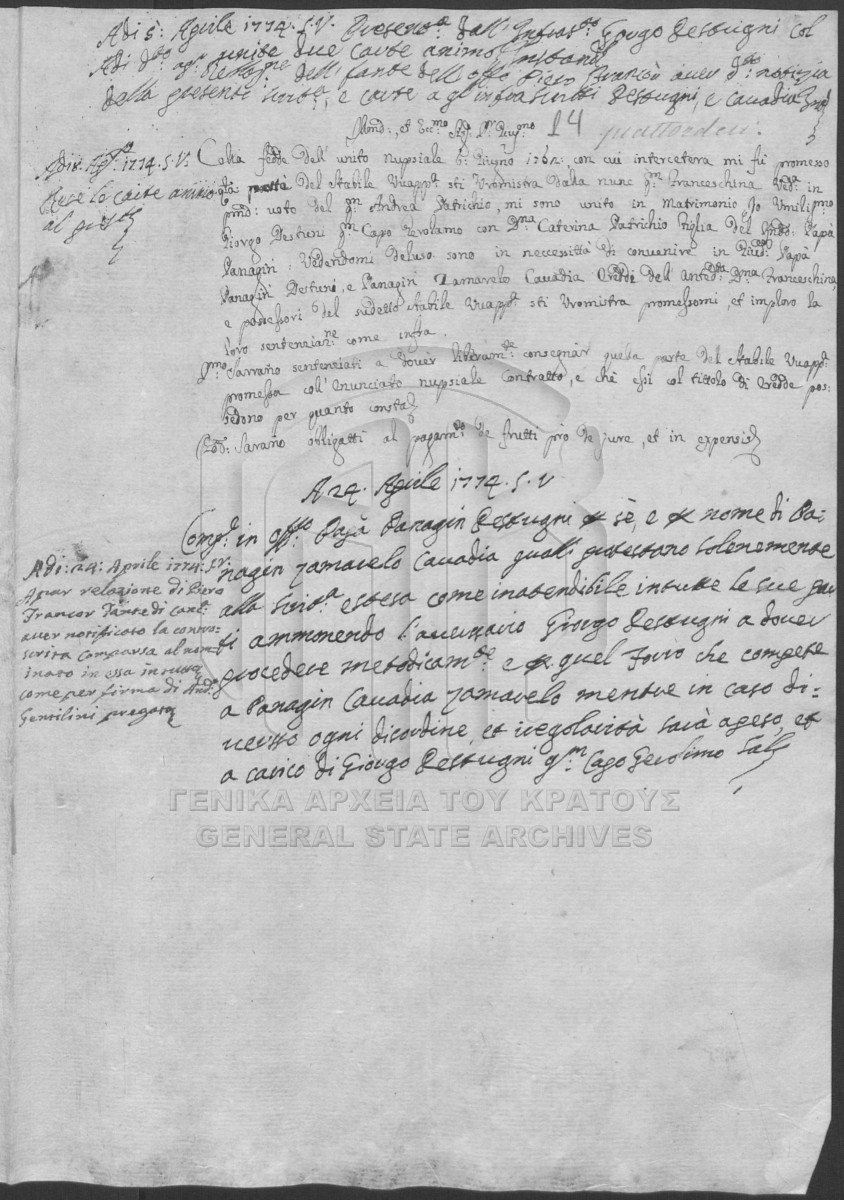 Adi 5: Aprile 1774. S.V. Present:ta dall' Infras:to Giorgo Destugni col
unite due carte animo
Adi d:to dell' fante dell' Offo Piero Francor aver d:to notizia
della presente scrit:a, e carte a gl'infrascritti Destugni, e Cavadia
14 quattordeci.
Colla fede dell' unito nupsiale 6: Giugno 1762: con cui intercetera mi fù promesso
Del stabile Vuapp:o sti Vromistra Dalla nunc q:m Franceschina Ved:a in
p:mo: voto del q:m Andrea Patrichio, mi sono unito in Matrimonio Io Umilis:mo
Giorgo Destuni q:m Capo Zerolamo con D:na Caterina Patrichio Figlia Del Papà
Panagin: Vedendomi Deluso sono in neccessità di convenire in Giud:o Papà
Panagin Destuni, e Panagin Zamarelo Cavadia Eredi Dell' Anted:ta D:na Franceschina,
e possessori del sudetto stabile Vuapp:o sti Vromistra promessomi, et imploro la
loro sentenziaz:ne come infra.
P:mo Sarrano sentenziati a dover liberam:te consegnar quella parte del stabile Vuapp:o
promessa coll' enunciato nupsiale contratto, e chè essi col tittolo di Erede pos-
sedono per quanto consta
Sarano obligatti al pagam:to de frutti pro de jure, et in expensis
Adi 1774. S.V:
Reve le carte animo
al
A 24. Aprile 1774. S.V
Comp:e in Off:o Papà Panagin Destugni per sè, e per nome di Pa-
nagin Zamarelo Cavadia quali protestano solenemente
alla Scrit:a estesa come inatendibile in tutte le sue par
ti ammonendo l'aversario Giorgo Destugni a dover
procedere metodicam:te e per quel Foro che compete
a Panagin Cavadia Zamarelo mentre in caso di-
verso ogni disordine, et iregolarità sarà a peso, et
a carico di Giorgo Destugni q:m Capo Gerolimo Sal
Adi: 24: Aprile 1774. S.V.
Apar relazione di Piero
Francor Fante di
aver notificato la contro-
scritta Comparsa al nom
inato in essa in tutto
come per firma di And:a
Gentilini pregato
ΓΕΝΙΚΑ ΑΡΧΕΙΑ ΤΟΥ ΚΡΑΤΟΥΣ
GENERAL STATE ARCHIVES